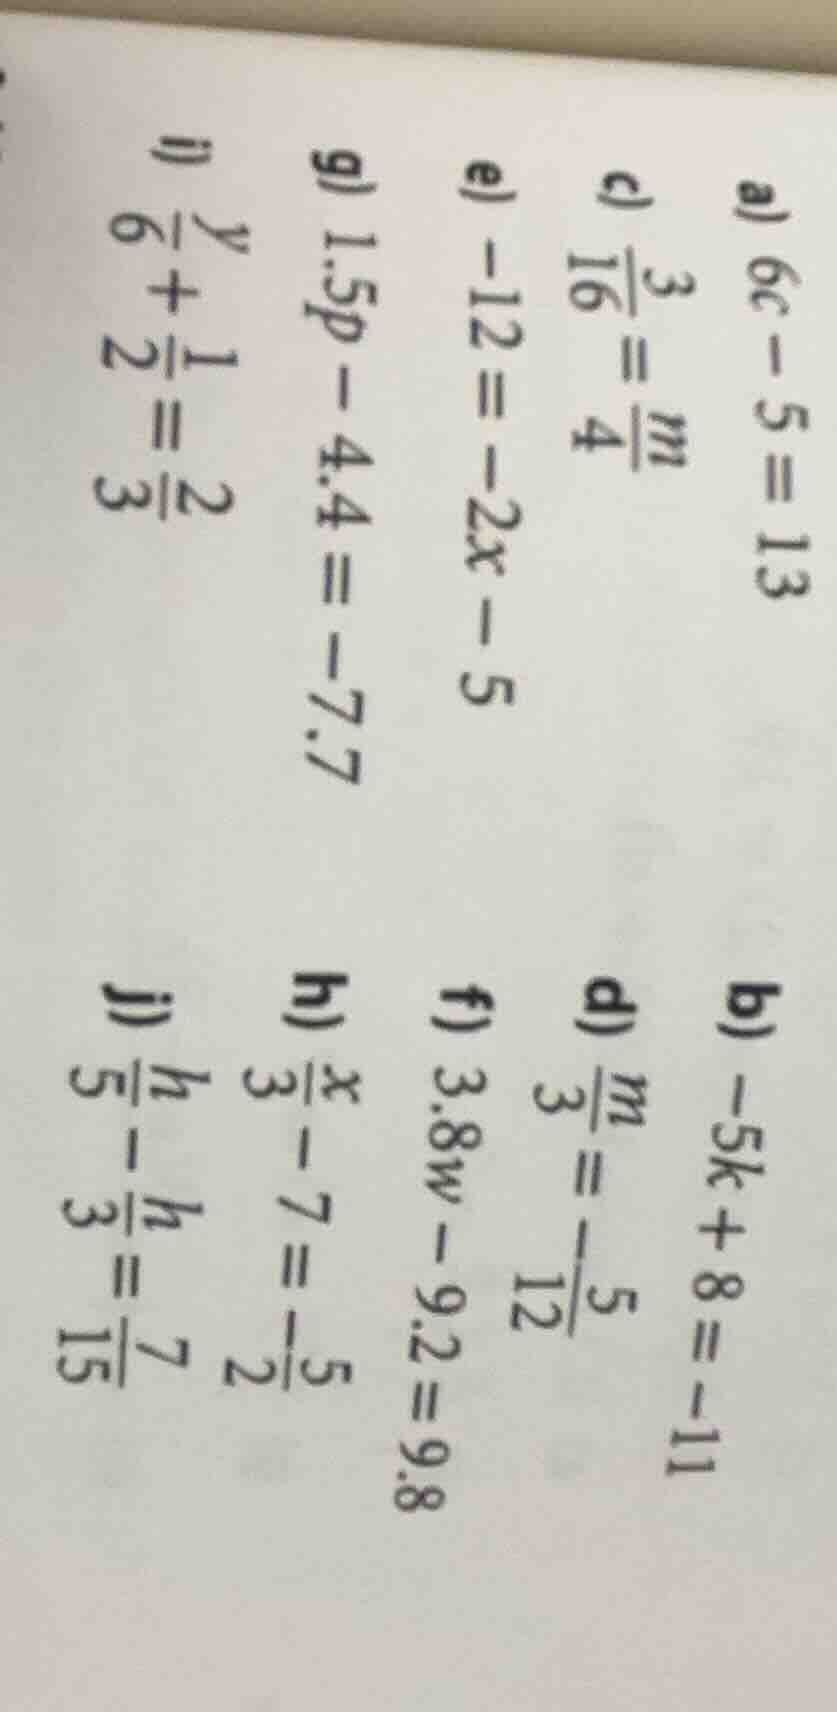 a) 6c − 5 = 13
b) −5k + 8 = −11
c) 3/16 = m/4
d) m/3 = −5/12
e) −12 = −2x − 5
f) 3.8w − 9.2 = 9.8
g) 1.5p − 4.4 = −7.7
h) x/3 − 7 = −5/2
i) y/6 + 1/2 = 2/3
j) h/5 − h/3 = 7/15